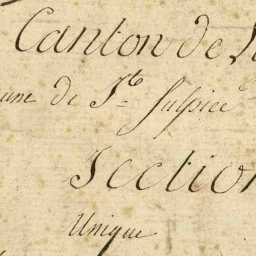 Canton de
une de St Sulpice
Section
Unique